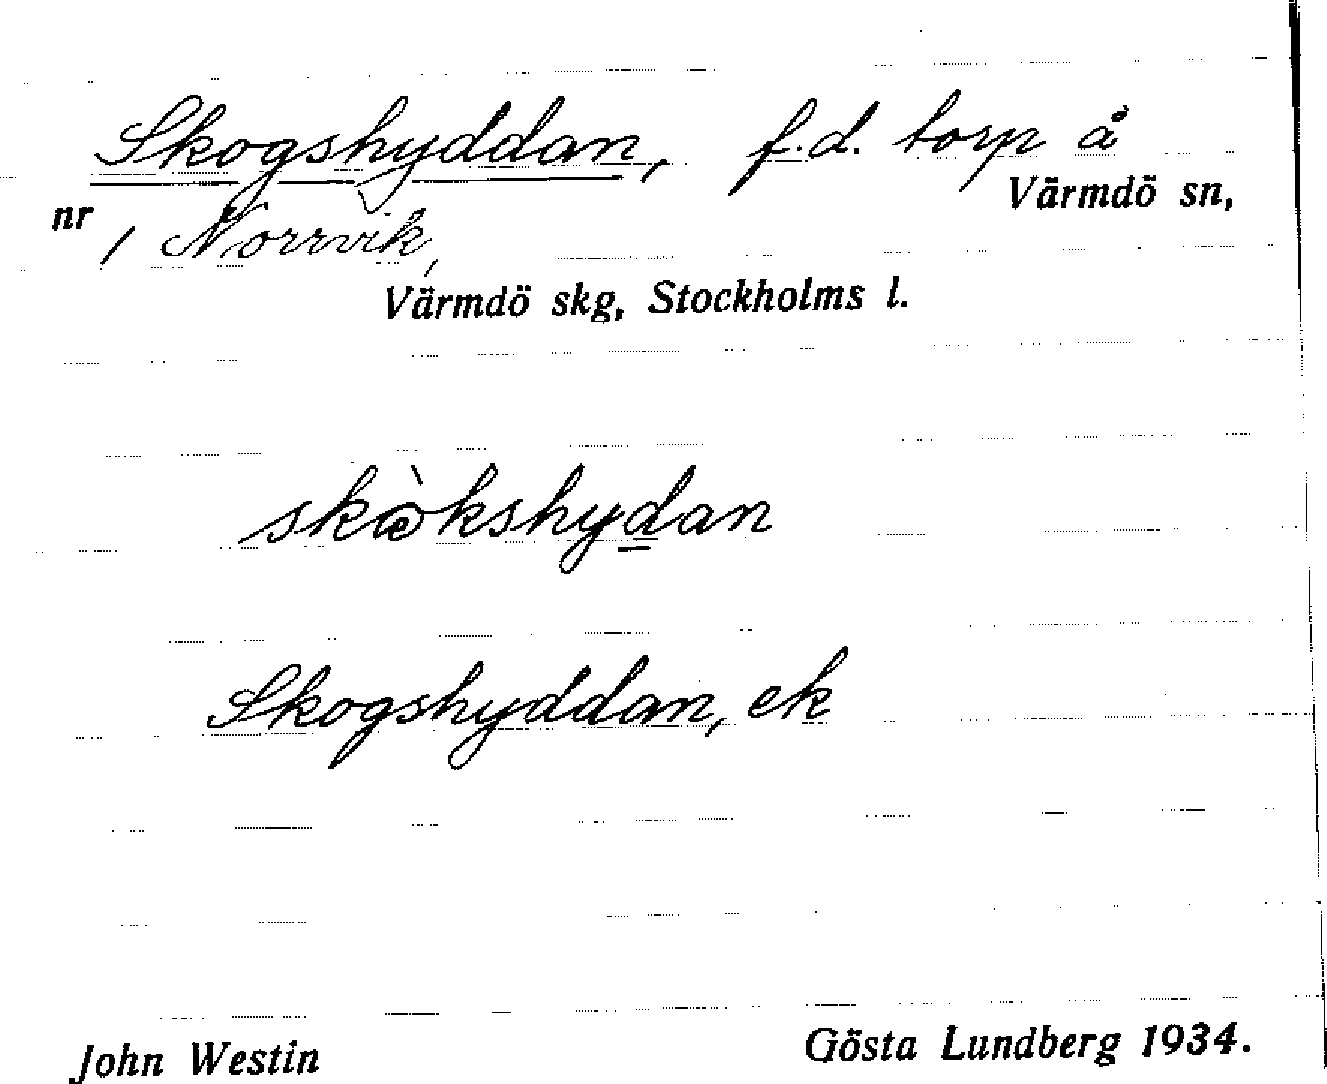 Skogshyddan, f.d. torp å
Värmdö sn,
nr 1 Norrvik,
Värmdö skg, Stockholms l.
skògkshydan
Skogshyddan, ek
John Westin Gösta Lundberg 1934.